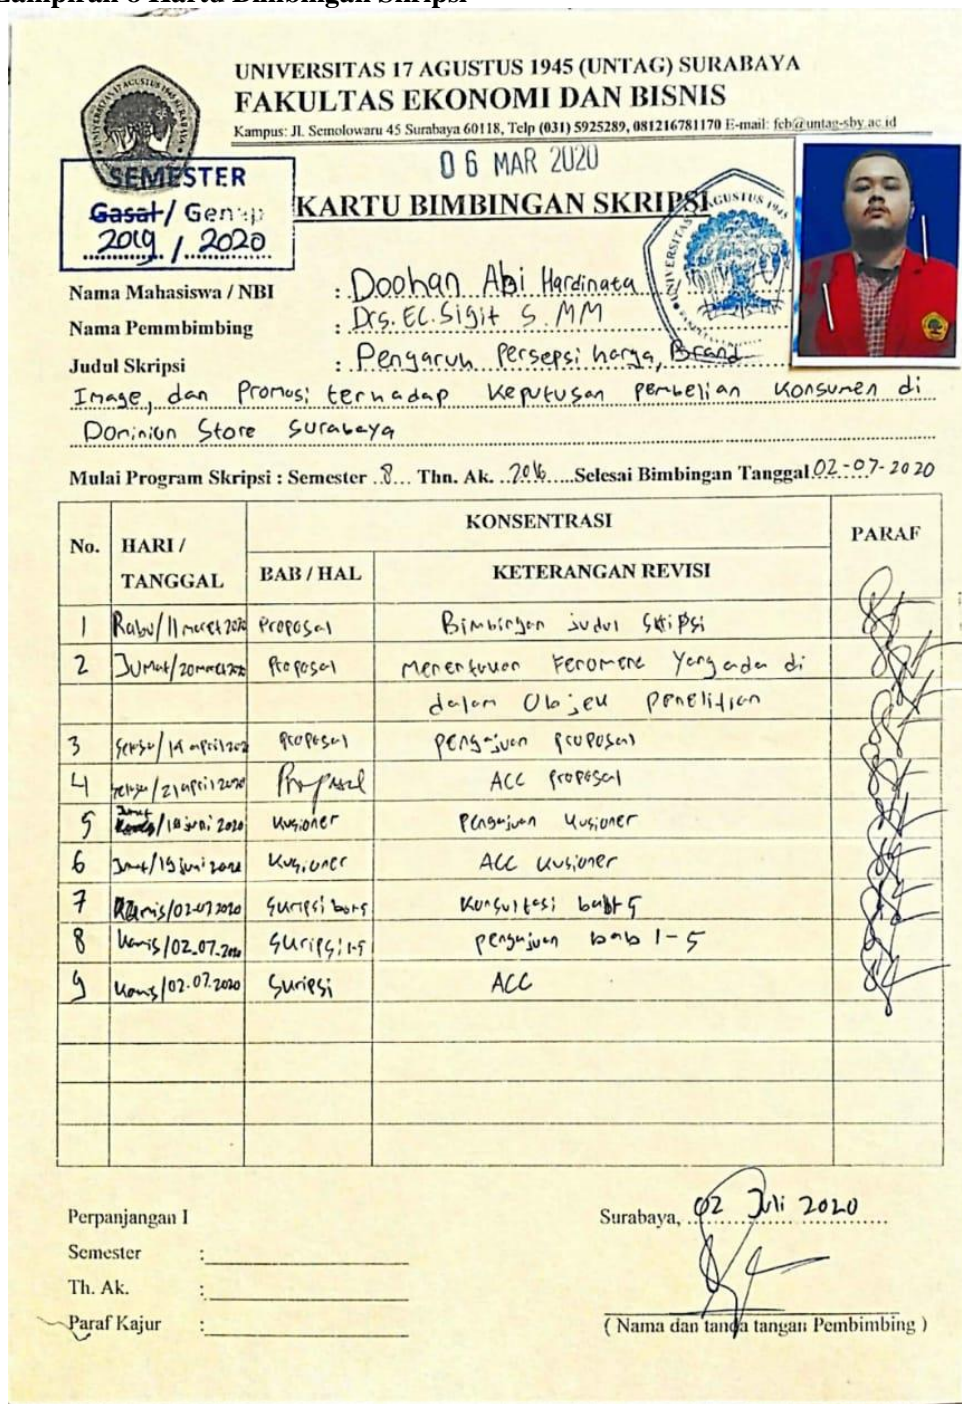 Lampiran 8 Kartu Bimbingan Skripsi
UNIVERSITAS 17 AGUSTUS 1945 (UNTAG) SURABAYA
FAKULTAS EKONOMI DAN BISNIS
Kampus: Jl. Semolowaru 45 Surabaya 60118, Telp (031) 5925289, 081216781170 E-mail: feb@untag-sby.ac.id
06 MAR 2020
SEMESTER
Gasal / Genap
2019 / 2020
KARTU BIMBINGAN SKRIPSI
Nama Mahasiswa / NBI : Doohan Abi Hardinata
Nama Pemmbimbing : Drs. EC. Sigit S. MM
Judul Skripsi : Pengaruh Persepsi harga, Brand
Image, dan Promosi terhadap Keputusan pembelian Konsumen di
Dominion Store Surabaya
Mulai Program Skripsi : Semester 8 Thn. Ak. 2016 Selesai Bimbingan Tanggal 02-07-2020
No. HARI / TANGGAL KONSENTRASI PARAF
BAB / HAL KETERANGAN REVISI
1 Rabu/11 maret 2020 Proposal Bimbingan judul Skripsi
2 Jumat/20 maret 2020 Proposal Menentukan Feromena Yang ada di
dalam Objek Penelitian
3 Selasa/14 april 2020 Proposal pengajuan proposal
4 selasa/21 april 2020 Proposal ACC proposal
5 Jumat/19 juni 2020 Kusioner Pengajuan Kusioner
6 Jumat/19 juni 2020 Kusioner ACC Kusioner
7 Kamis/02-07 2020 Skripsi Konsultasi bab 5
8 Kamis/02.07.2020 Skripsi 1-5 pengajuan bab 1-5
9 Kamis/02.07.2020 Skripsi ACC
Perpanjangan I
Semester :
Th. Ak. :
Paraf Kajur :
Surabaya, 02 Juli 2020
( Nama dan tanda tangan Pembimbing )